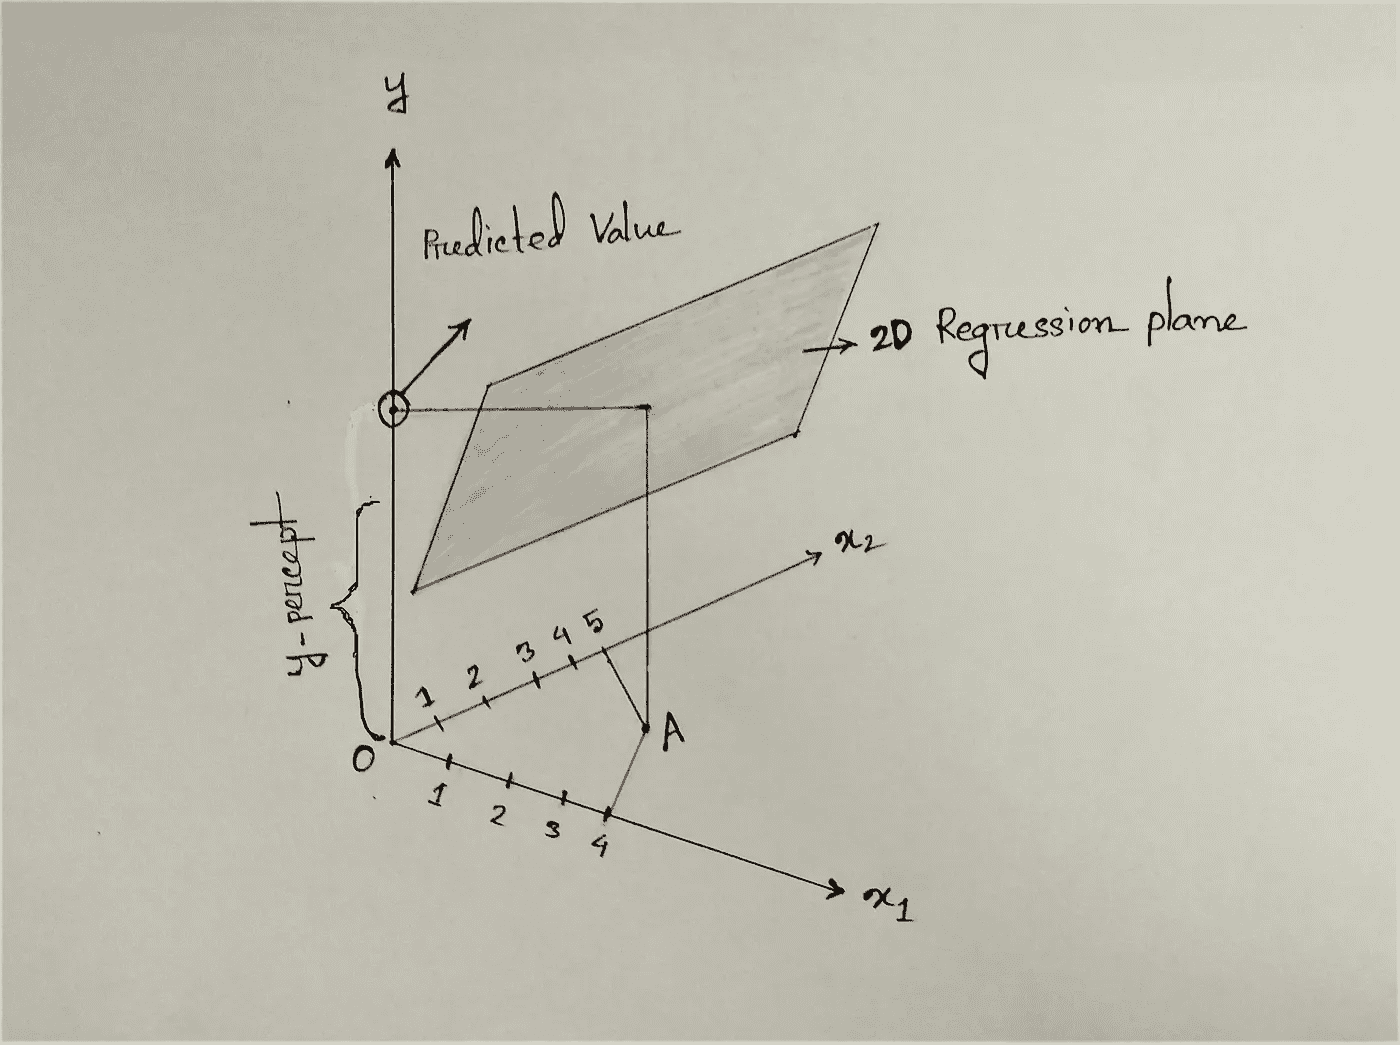 y
Predicted Value
2D Regression plane
y-percept
x2
1 2 3 4 5
O
A
1 2 3 4
x1